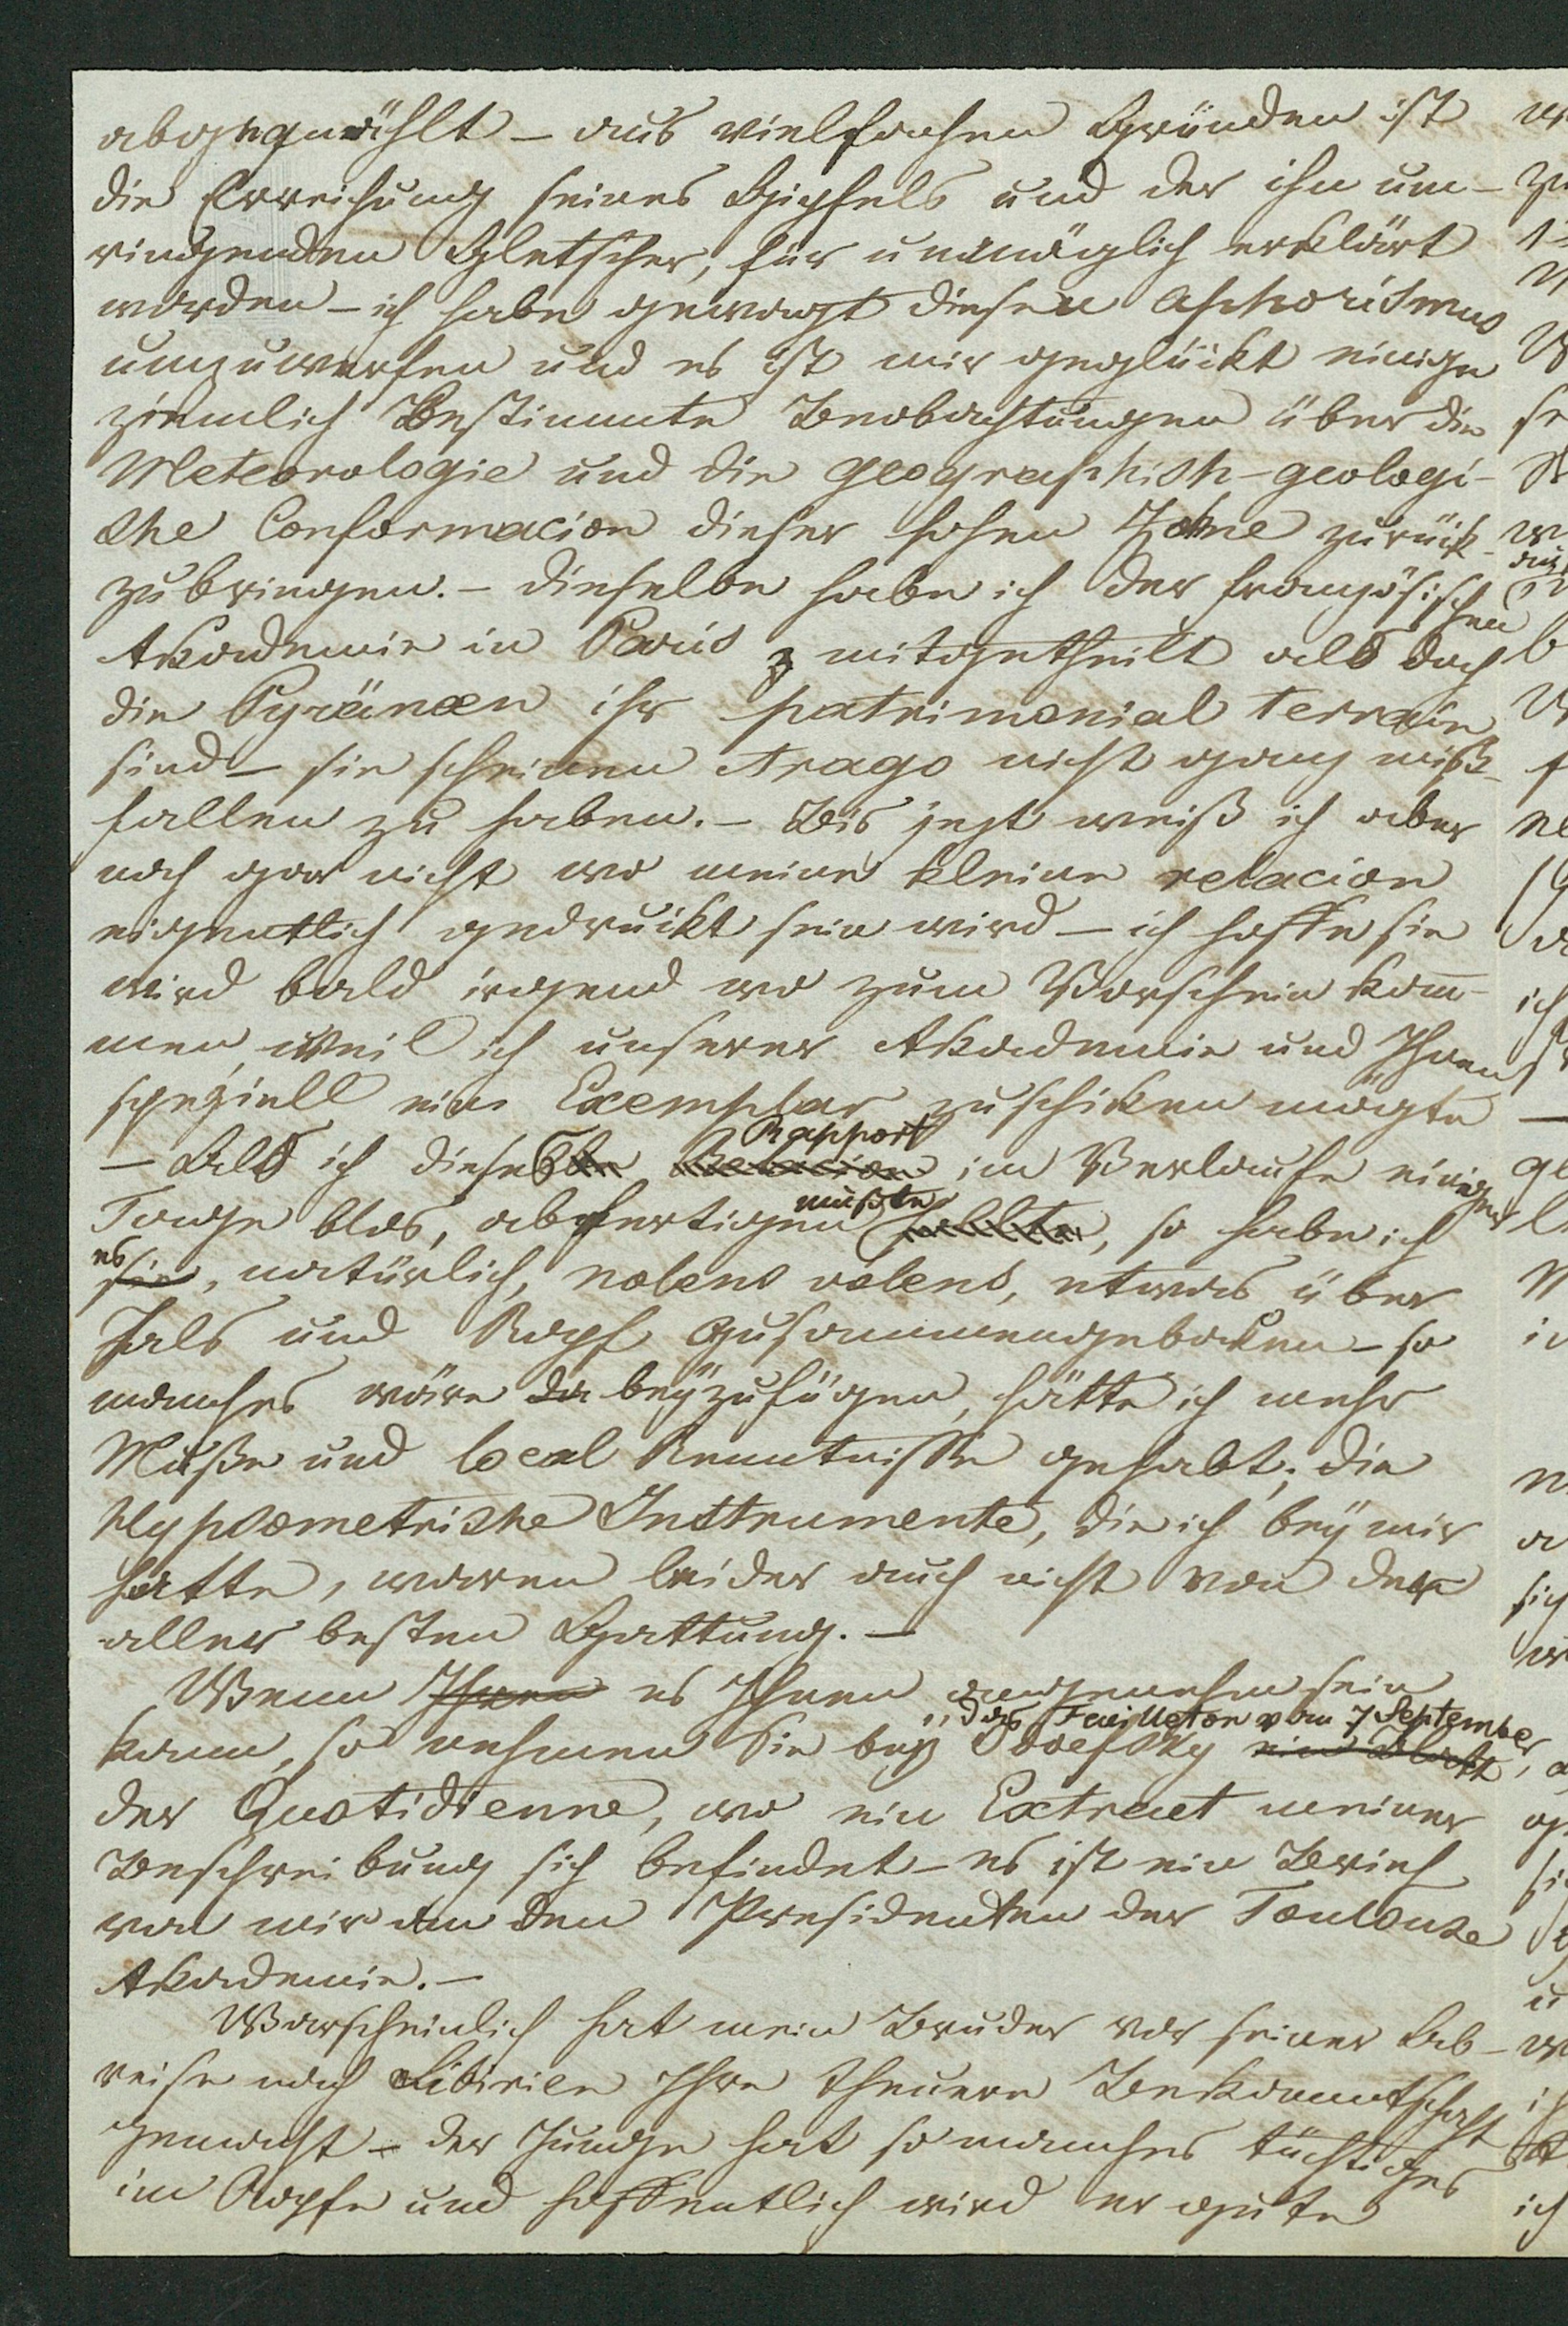 abgequält – aus vielfachen Gründen ist
die Erreichung seines Gipfels und der ihn um-
ringenden Gletscher, für unmöglich erklärt
worden – ich habe gewagt diesen Aphorismus
umzuwerfen und es ist mir geglückt einige
ziemlich bestimmte Beobachtungen über die
Meteorologie und die geographish-geologi-
she Conformacion dieser hohen Zone zurück-
zubringen. – dieselbe habe ich der französischen
Akademie in Paris mitgetheilt als doch
die Pyränæn ihr patrimonial terrain
sind – sie scheinen Arago nicht ganz miß-
fallen zu haben. – Bis jezt weiß ich aber
noch gar nicht wo meine kleine relacion
eigentlich gedruckt sein wird – ich hoffe sie
wird bald irgend wo zum Vorschein kom-
men, weil ich unserer Akademie und Ihnen
speziell ein Exemplar zuschiken mögte –
Rapport
– Als ich dieselbe Relacion im Verlaufe einiger
mußte
Tage blos, abfertigen sollte, so habe ich
es
sie, natürlich, nolens volens, etwas über
Hals und Kopf zusammengebaken – so
manches wäre da beyzufügen, hätte ich mehr
Muße und local Kenntnisse gehabt; die
Hypsometrishe Instrumente, die ich bey mir
hatte, waren leider auch nicht von der
aller besten Gattung. –
Wenn Ihnen es Ihnen angenehm sein
das Feuilleton vom 7 September,
kann, so nehmen Sie bey Odoefsky ein Blatt
der Quotidienne, wo ein Extract meiner
Beschreibung sich befindet – es ist ein Brief
von mir an den Presidenten der Toulouse
Akademie. –
Warscheinlich hat mein Bruder vor seiner Ab-
reise nach Sibirien Ihre theuere Bekanntschaft
gemacht – der Junge hat so manches tüchtiges
im Kopfe und hoffentlich wird er gute